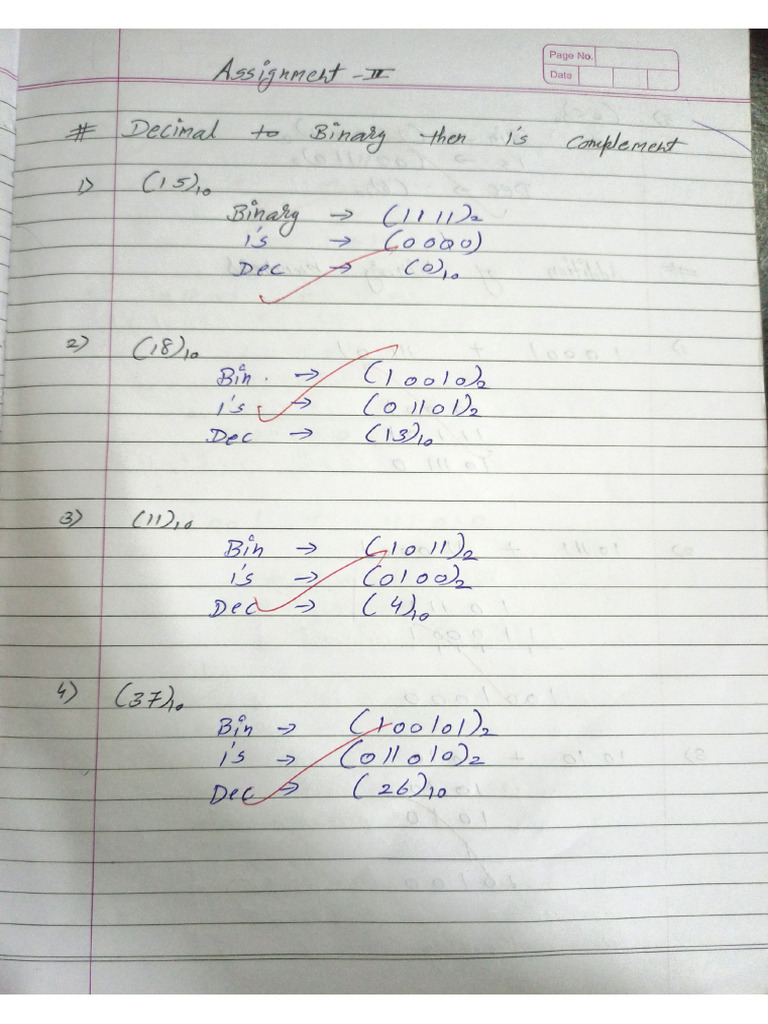 Page No.
Date
Assignment - II
# Decimal to Binary then 1's complement
1) (15)10
Binary → (1111)2
1's → (0000)
Dec → (0)10
2) (18)10
Bin. → (10010)2
1's → (01101)2
Dec → (13)10
3) (11)10
Bin → (1011)2
1's → (0100)2
Dec → (4)10
4) (37)10
Bin → (100101)2
1's → (011010)2
Dec → (26)10